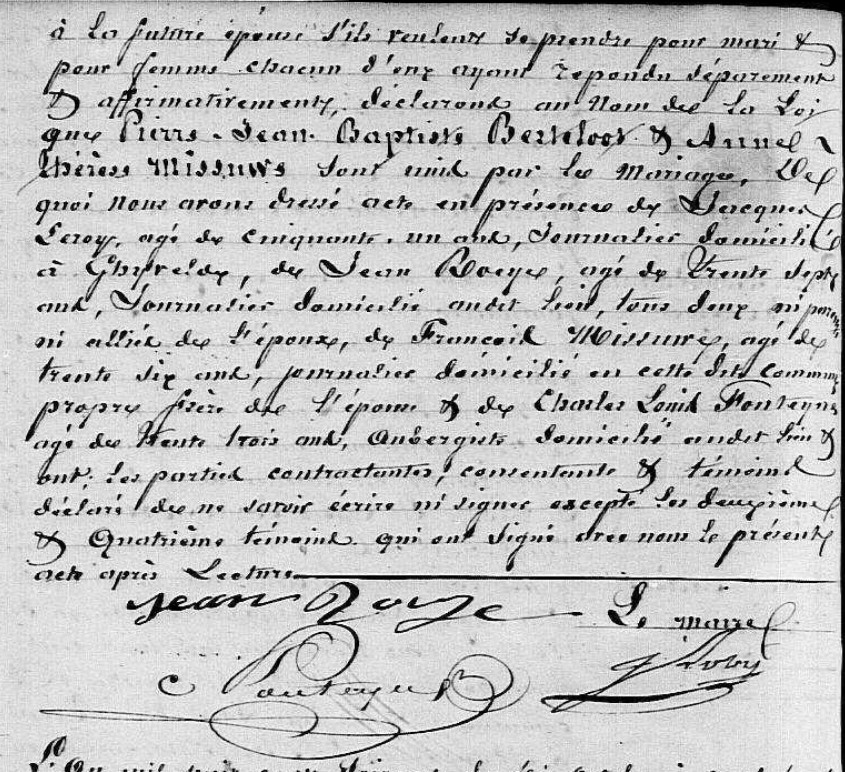 à la future épouse s'ils veulent se prendre pour mari &
pour femme chacun d'eux ayant repondu séparement
& affirmativement, déclarons au nom de la Loi
que Pierre Jean Baptiste Berteloot & Anne
thérèse Missuwe sont unis par le mariage, De
quoi nous avons dressé acte en présence de Jacques
Leroy, agé de cinquante un ans, Journalier domicilié
à Ghyvelde, de Jean Roeye, agé de trente sept
ans, Journalier domicilié audit lieu, tous deux ni parents
ni alliés de l'époux, de François Missuwe, agé de
trente six ans, journalier domicilié en cette dite commune
propre frère de l'épouse & de Charles Louis Fonteyne
agé de trente trois ans, Aubergiste domicilié audit lieu &
ont les parties contractantes, consentante & témoins
déclaré de ne savoir écrire ni signer excepté les deuxième
& Quatrième témoins qui ont signé avec nous le présent
acte après Lecture
Jean Roeye Le maire
C Fonteyne
L'An mil